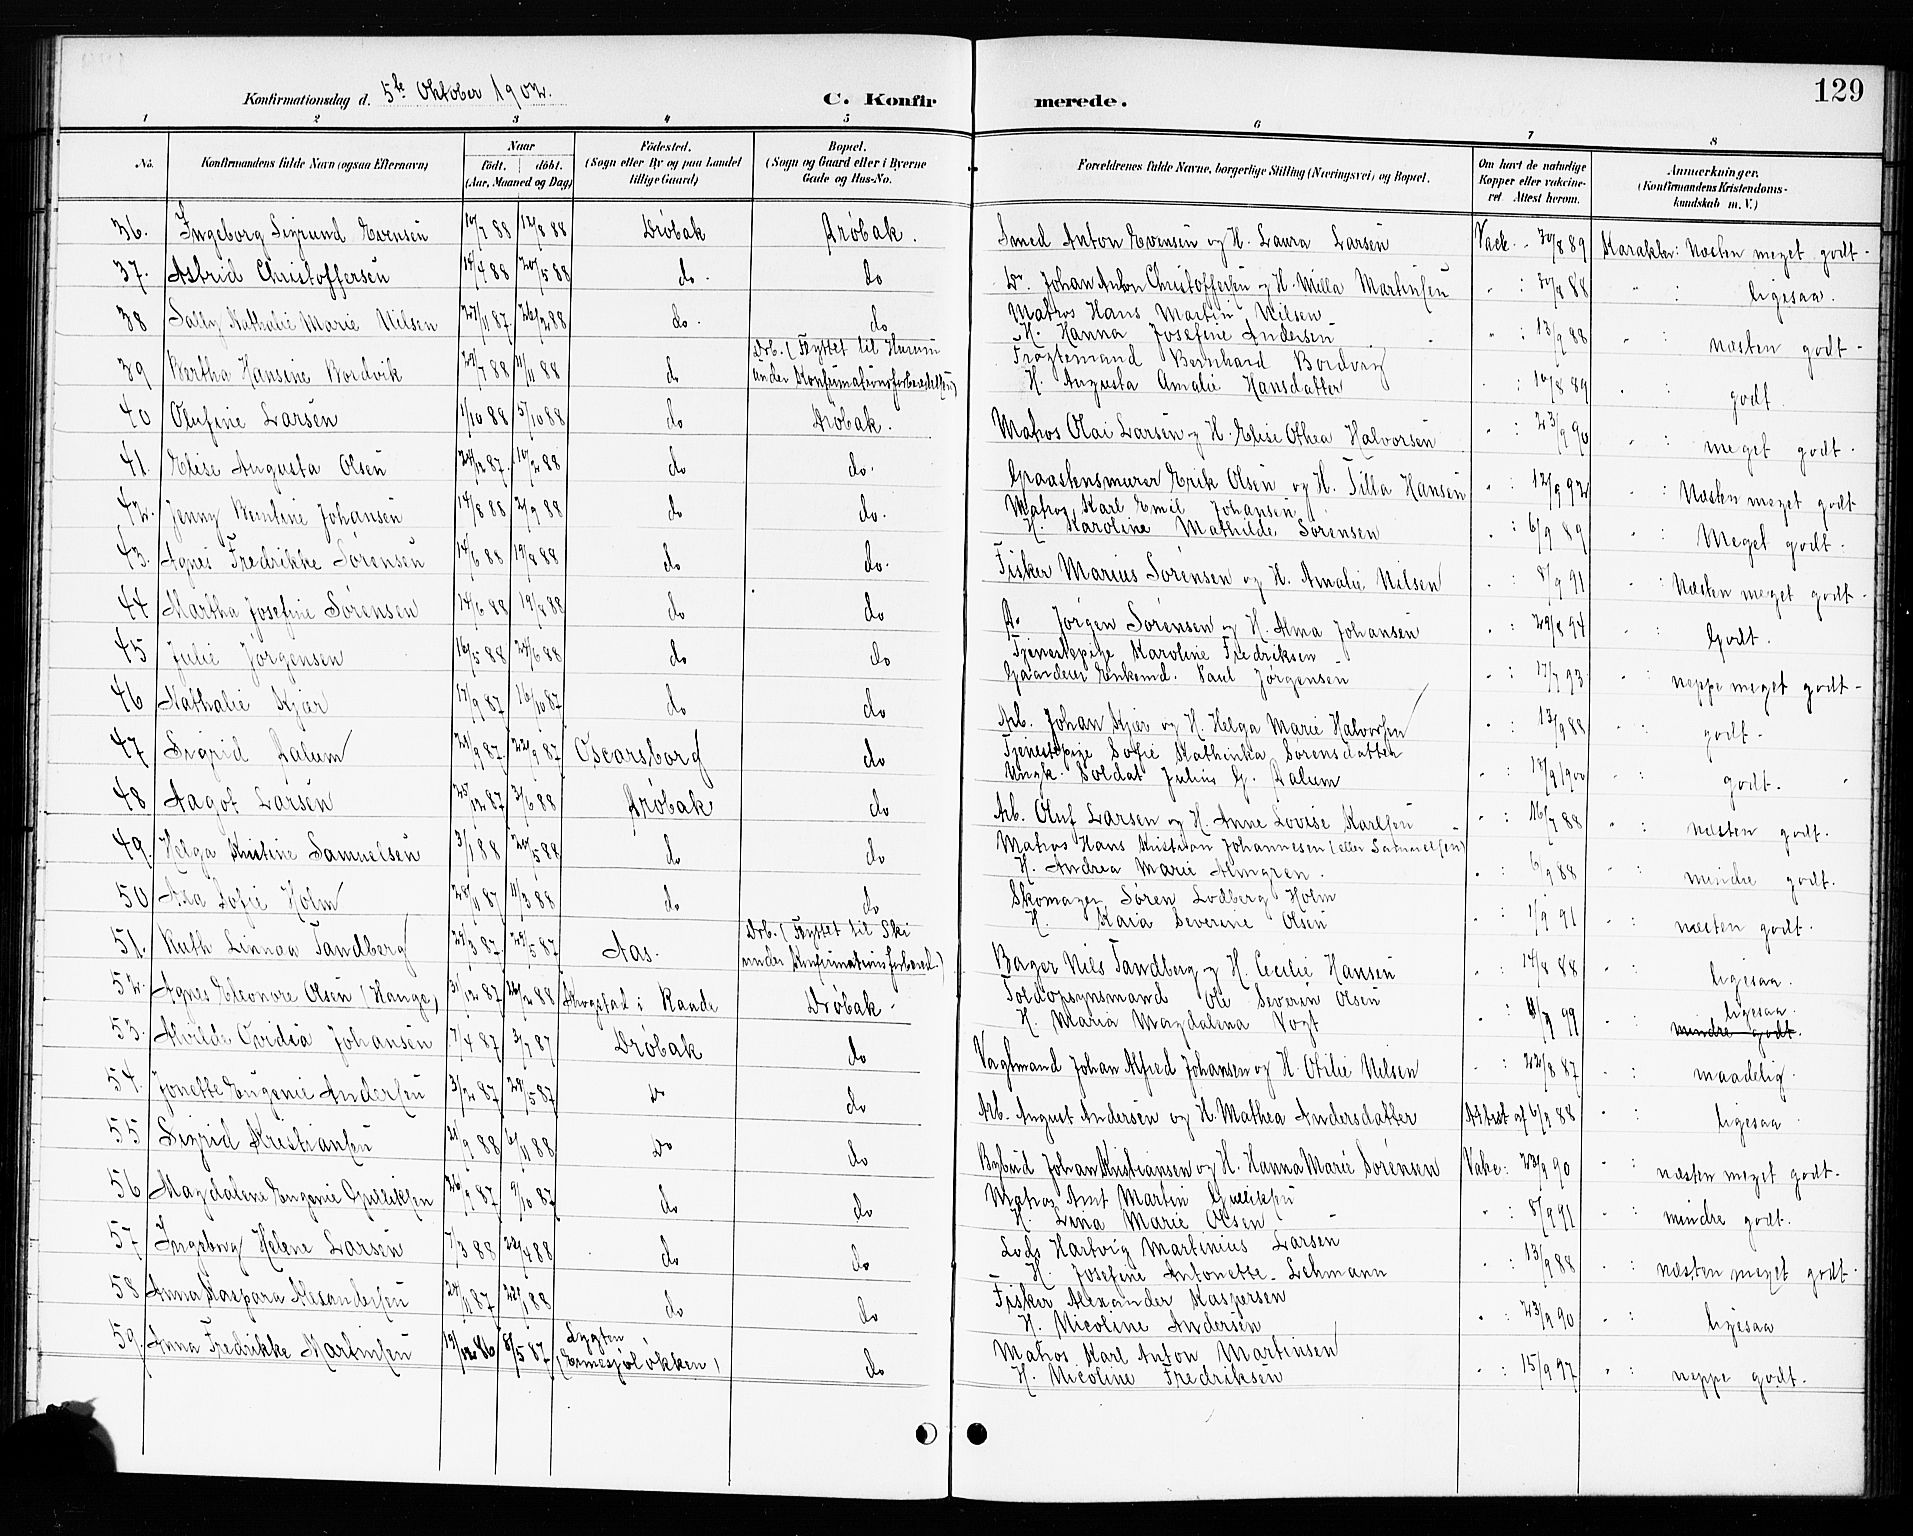 129
Konfirmationsdag d. 5te Oktober 1902.
C. Konfirmerede.
1 2 3 4 5 6 7 8
No. Konfirmandens fulde Navn (ogsaa Efternavn) Naar født. døbt. (Aar, Maaned og Dag) Fødested. (Sogn eller By og paa Landet tillige Gaard) Bopæl. (Sogn og Gaard eller i Byerne Gade og Hus-No. Forældrenes fulde Navne, borgerlige Stilling (Næringsvei) og Bopæl. Om havt de naturlige Kopper eller vakcineret Attest herom. Anmærkninger. (Konfirmandens Kristendomskundskab m. V.)
36. Ingeborg Sigrund Evensen 10/7 88 12/8 88 Drøbak Drøbak. Smed Anton Evensen og H. Laura Larsen Vack. 30/8 89 Karakter: Næsten meget godt.
37. Astrid Christoffersen 14/4 88 20/5 88 do. do Do. Johan Anton Christoffersen og H. Milla Martinsen " : 30/8 88 " : ligesaa.
38 Sally Nathalie Marie Nilsen 27/11 87. 26/2 88 do. do Matros Hans Martin Nilsen
H. Hanna Josefine Andersen " : 13/9 88 " : næsten godt.
39 Bertha Hansine Bordvik 29/7 88 11/11 88 do Drb. (Flyttet til Hurum
under Konfirmationsforberedelsen) Bernhard Bordvig
H. Augusta Amalie Hansdatter " : 10/8 89 " : godt.
40 Olufine Larsen 1/10 88 5/10 88 do Drøbak. Matros Olai Larsen og H. Elise Othea Halvorsen " : 23/9 90 " : meget godt.
41. Elise Augusta Olsen 24/12 87. 10/2 88 do do. Graastensmurer Erik Olsen og H. Tilla Hansen " : 12/9 92 " : Næsten meget godt
42. Jenny Berntine Johansen 14/8 88 2/9 88 do do. Matros Karl Emil Johansen
H. Karoline Mathilde Sørensen " : 6/9 89 " : Meget godt.
43. Agnes Fredrikke Sørensen 14/6 88 19/8 88 do do. Fisker Marius Sørensen og H. Amalie Nilsen " : 8/9 91 " : Næsten meget godt.
44 Martha Josefine Sørensen 24/6 88 19/8 88 do do Do Jørgen Sørensen og H. Alma Johansen " : 29/8 94 " : Godt.
45 Julie Jørgensen 16/5 88 24/6 88 do do Tjenestepige Karoline Fredriksen
Enkemd. Paul Jørgensen " : 17/7 93 " : neppe meget godt.
46 Nathalie Kjær 17/9 87. 16/10 87 do do Arb. Johan Kjær og H. Helga Marie Halvorsen " : 13/9 88 " : godt.
47 Sigrid Dalum 21/9 87. 22/9 87 Oscarsborg do Tjenestepige Sofie Kathinka Sørensdatter
Ungk. Soldat Julius G. Dalum " : 18/9 1900 " : godt.
48 Aagot Larsen 25/12 87 3/6 88 Drøbak do Arb. Oluf Larsen og H. Anne Lovise Karlsen " : 16/7 88 " : næsten godt.
49. Helga Kristine Samuelsen 3/1 88 20/5 88 do do Matros Hans Kristian Johannesen (eller Samuelsen)
H. Andrea Marie Almgren. " : 6/9 88 " : mindre godt.
50 Axa Sofie Holm 28/11 87 11/3 88 do do Skomager Søren Lodberg Holm
H. Kaia Severine Olsen " : 1/9 91 " : næsten godt.
51. Ruth Linnaa Tandberg 29/3 87. 29/5 87 Aas. Drb. (Flyttet til Ski
under Konfirmationsforbered.) Bager Nils Tandberg og H. Cecilie Hansen " : 14/8 88 " : ligesaa.
52. Agnes Eleonore Olsen (Hauge) 31/12 87 26/2 88 i Raade Drøbak. Toldopsynsmand Ole Severin Olsen
H. Maria Magdalena Vogt " : 11/9 99 " : ligesaa.
mindre godt.
53. Alvilde Ovidia Johansen 7/4 87 3/7 87 Drøbak do Vagtmand Johan Alfred Johansen og H. Otilie Nilsen " : 22/8 87 " : maadelig.
54. Jonette Eugenie Andersen 3/2 87 29/5 87 Do do Arb. August Andersen og H. Mathea Andersdatter Attest af 6/9 88 " : ligesaa
55 Sigrid Kristiansen 21/9 88 6/11 88 Do do Bybud Johan Kristiansen og H. Hanna Marie Sørensen Vakc: 23/9 90 " : næsten meget godt.
56 Magdalene Eugenie Gulliksen 26/9 87 9/10 87 do do Matros Anst Martin Gulliksen
H. Lina Marie Olsen " : 8/9 91 " : mindre godt.
57 Ingeborg Helene Larsen 7/3 88 22/4 88 do do Lods Hartvig Martinius Larsen
H. Josefine Antonette Lehmann " : 13/9 88 " : næsten meget godt.
58 Anna Kaspara Alexandersen 24/11 87 22/1 88 do do Fisker Alexander Kaspersen
H. Nicoline Andersen " : 23/9 90 " : ligesaa
59. Anna Fredrikke Martinsen 19/12 86 8/5 87 do Matros Karl Anton Martinsen
H. Nicoline Fredriksen " : 15/9 97 " : neppe godt.